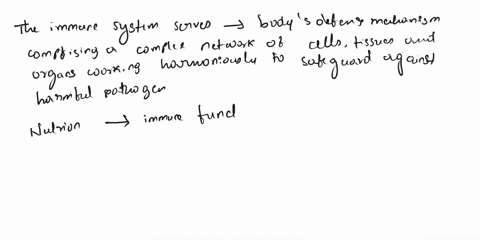 The immune system serves → body's defense mechanism
comprising a complex network of cells, tissues and
organs working harmoniously to safeguard against
harmful pathogen
Nutrion → immune funcl